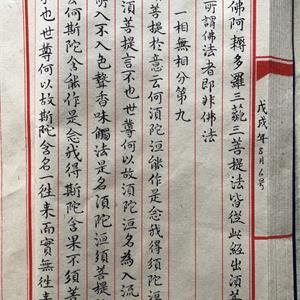 戊戌年8月6号
佛阿耨多羅三藐三菩提法皆從此經出須菩
所謂佛法者即非佛法
一相無相分第九
菩提於意云何須陀洹能作是念我得須陀
須菩提言不也世尊何以故須陀洹名為入流
所入不入色聲香味觸法是名須陀洹須菩提
云何斯陀含能作是念我得斯陀含果不須菩
也世尊何以故斯陀含名一徃来而實無徃来